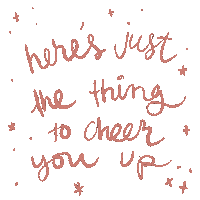 here's just
the thing
to cheer
you up